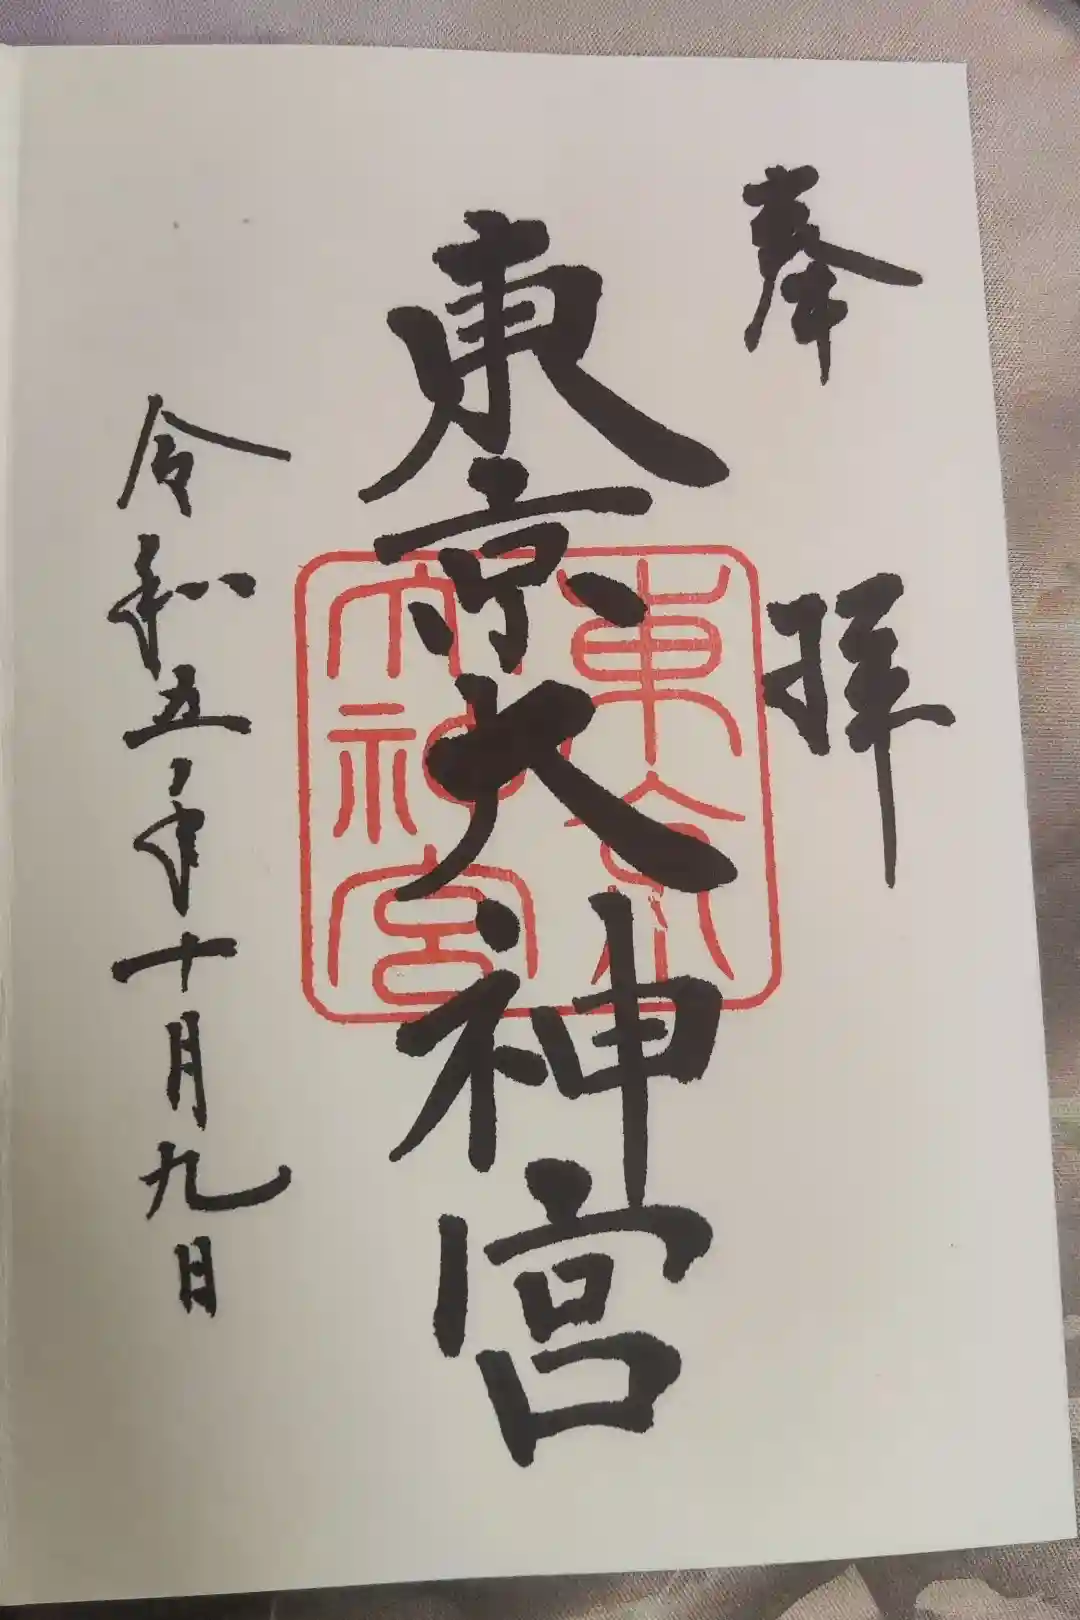 奉拝
東京大神宮
東京
大神宮
令和五年十月九日